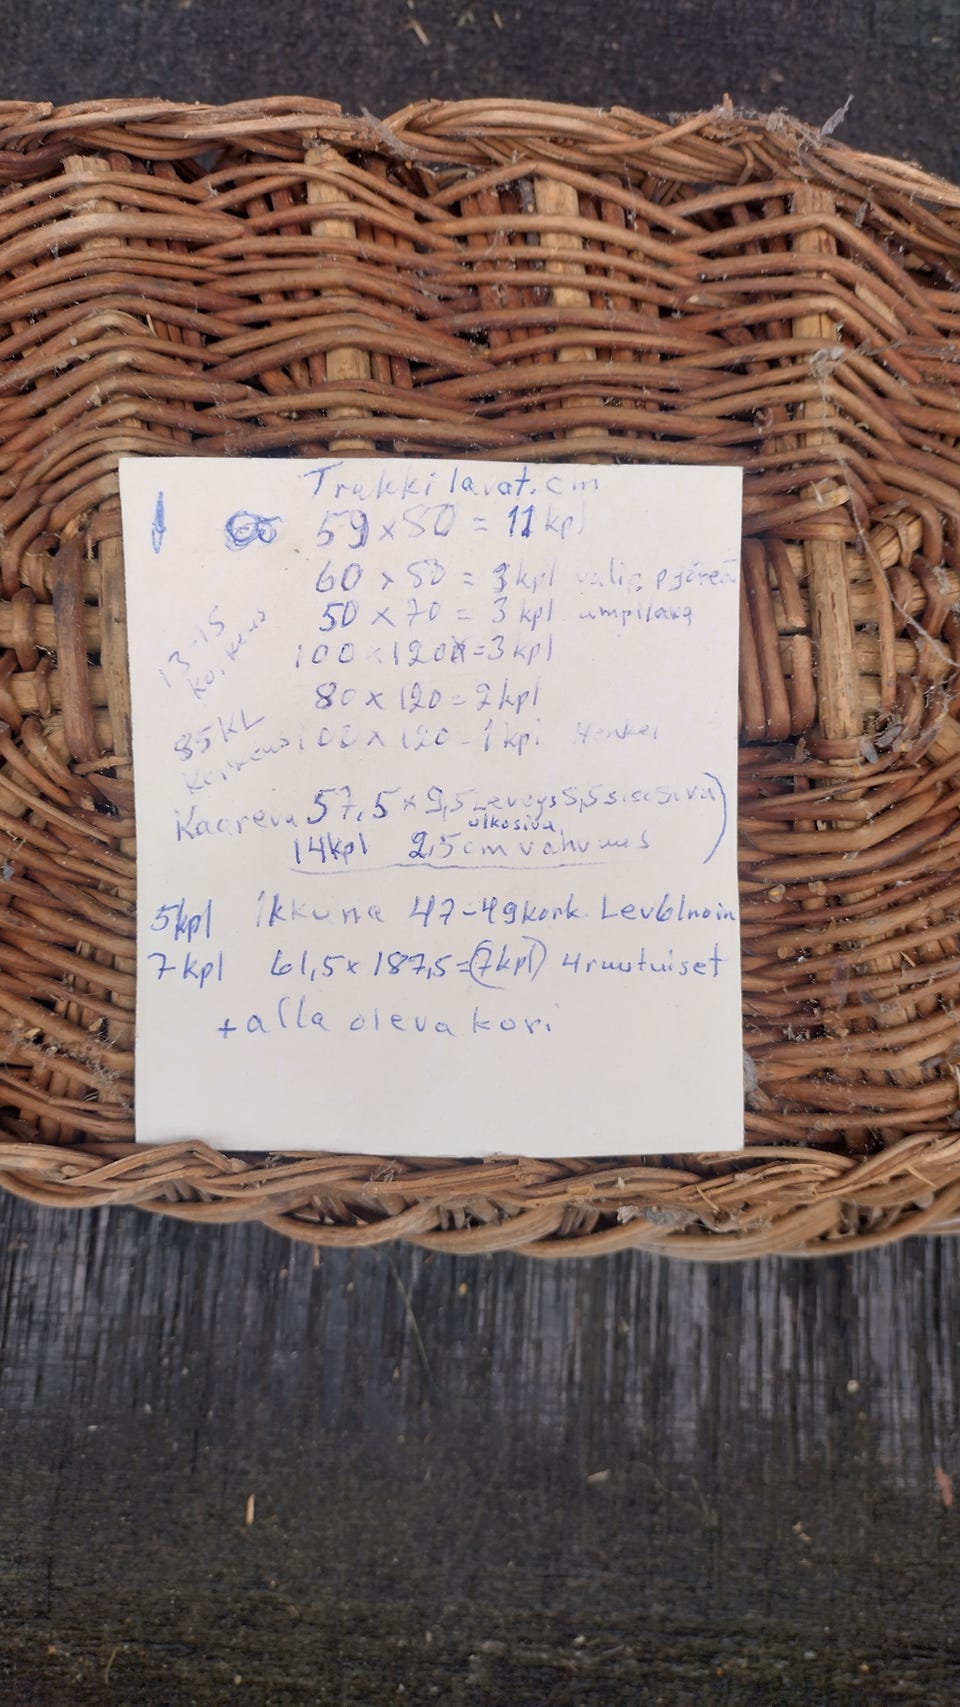 Trukkilavat. cm
59 x 80 = 11 kpl
60 x 80 = 3 kpl valip. pyöreä
50 x 70 = 3 kpl umpilava
13-15 korkeus
100 x 120 = 3 kpl
80 x 120 = 2 kpl
korkeus
100 x 120 - 1 kpl Henkel
Kaareva 57,5 x 9,5 Leveys 5,5 sisäsivu
ulkosivu
14 kpl 2,5 cm vahvuus
5 kpl ikkuna 47-49 kork. Lev 61 noin
7 kpl 61,5 x 187,5 = (7 kpl) 4 ruutuiset
+ alla oleva kori